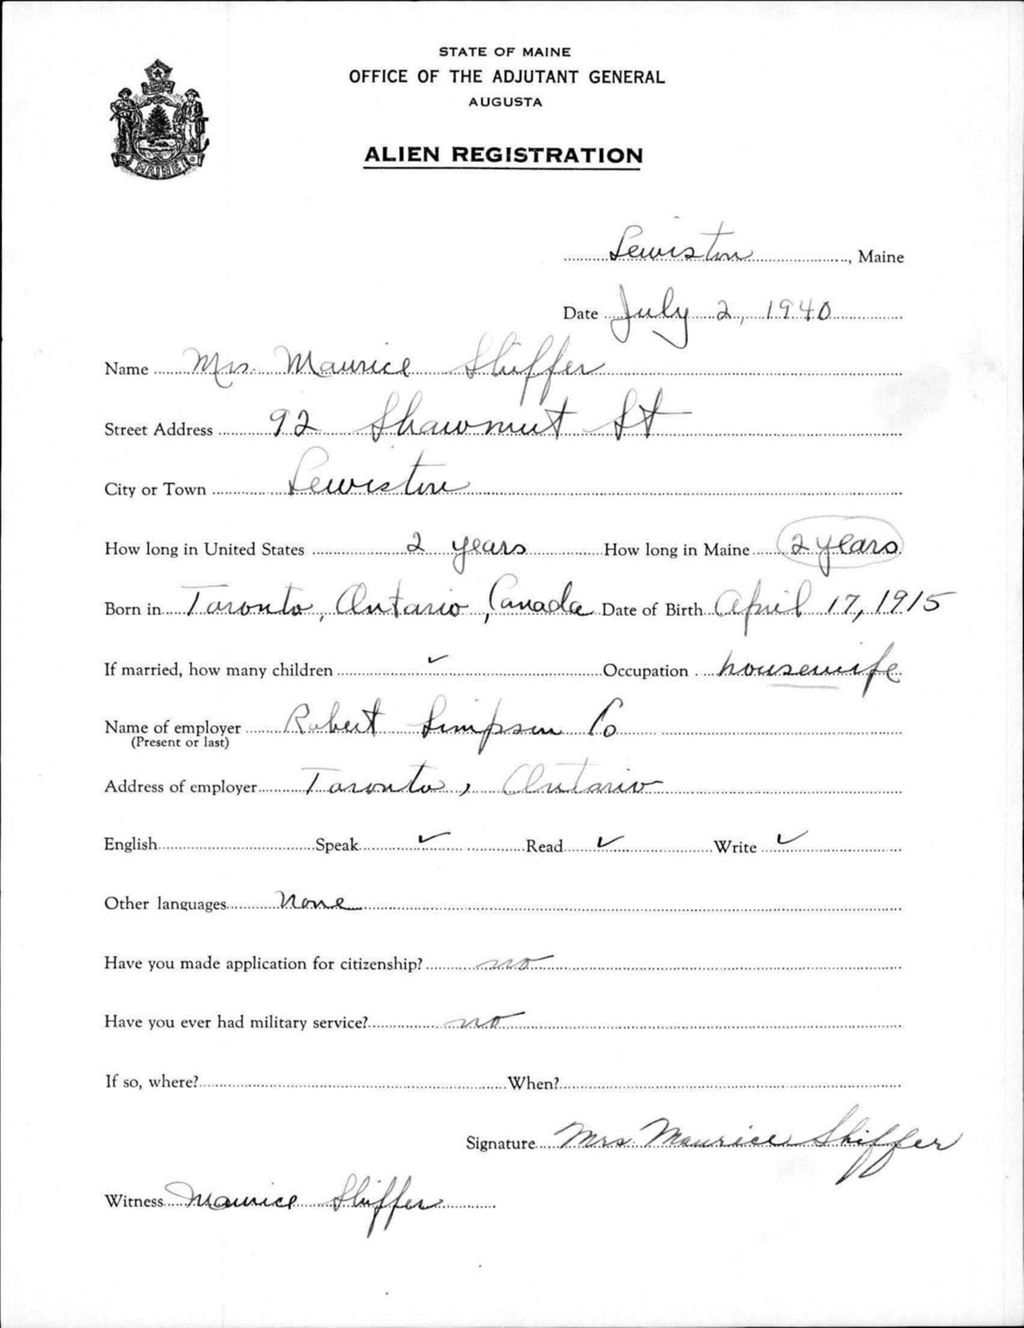 STATE OF MAINE
OFFICE OF THE ADJUTANT GENERAL
AUGUSTA
ALIEN REGISTRATION
MAINE
Lewiston, Maine
Date July 2, 1940
Name Mrs. Maurice Shiffer
Street Address 92 Shawmut St
City or Town Lewiston
How long in United States 2 years How long in Maine 2 years
Born in Toronto, Ontario, Canada Date of Birth April 17, 1915
If married, how many children ✓ Occupation housewife
Name of employer Robert Simpson Co
(Present or last)
Address of employer Toronto, Ontario
English Speak ✓ Read ✓ Write ✓
Other languages None
Have you made application for citizenship? no
Have you ever had military service? no
If so, where? When?
Signature Mrs. Maurice Shiffer
Witness Maurice Shiffer